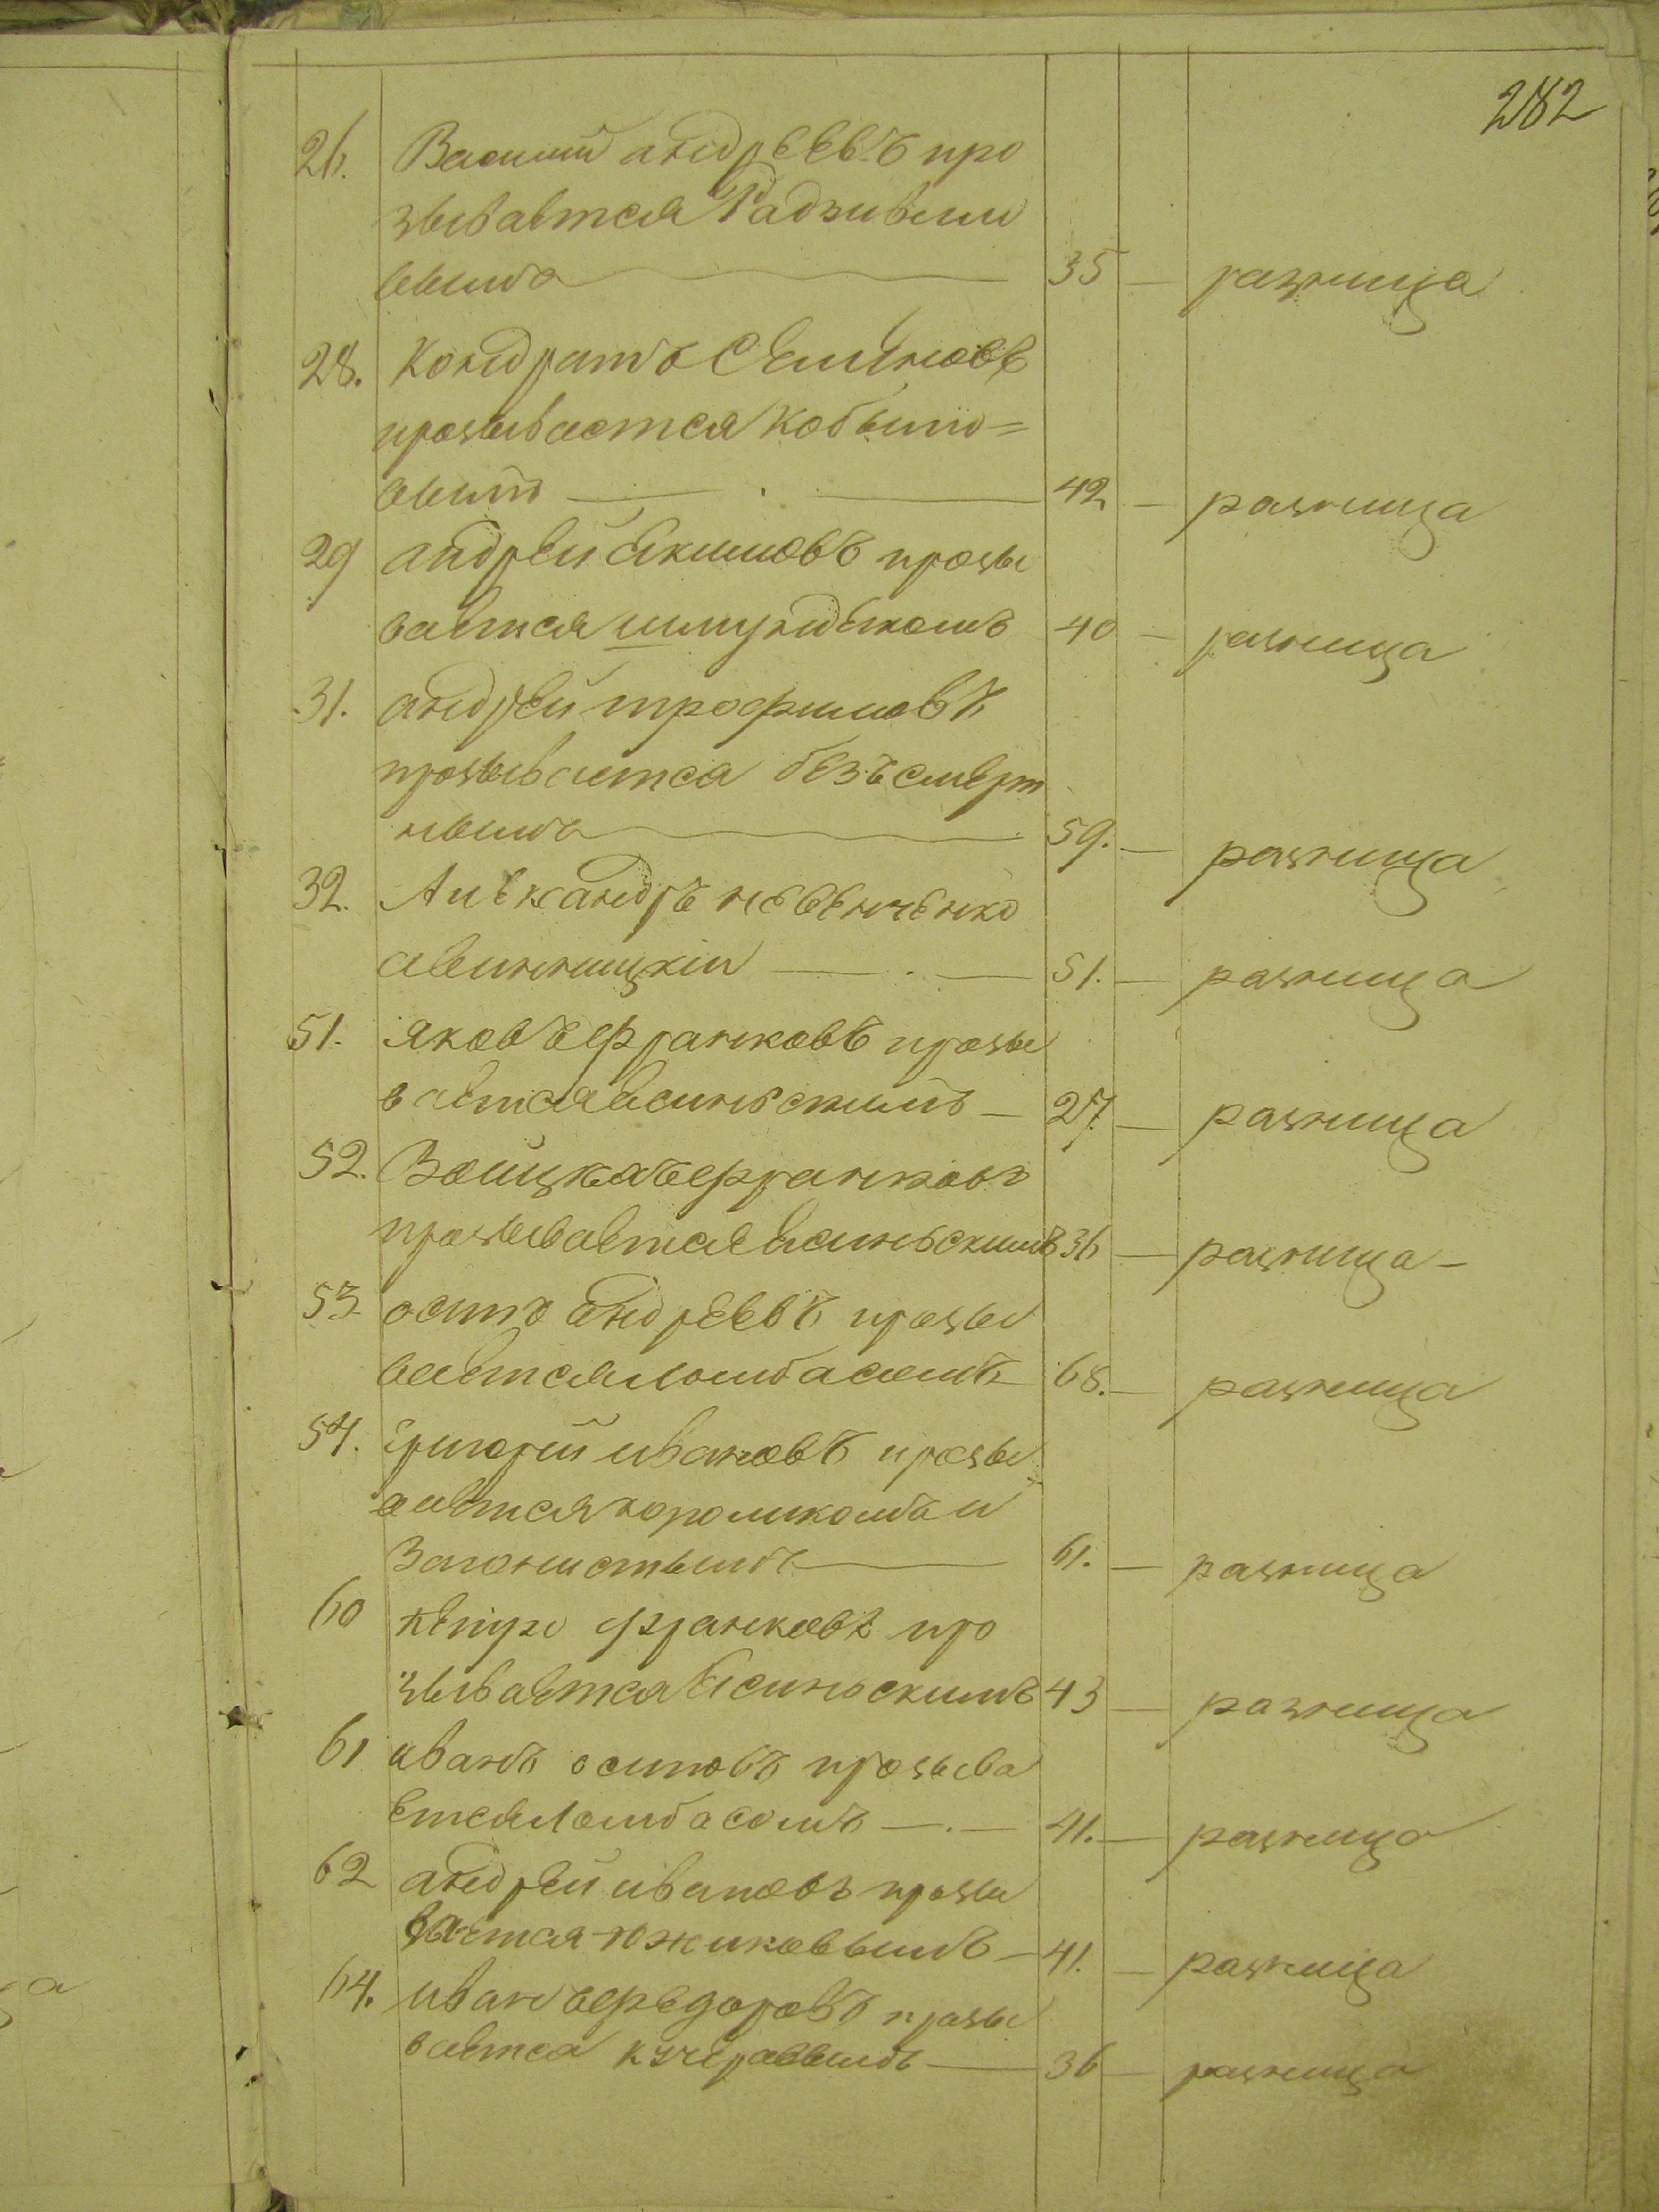 282
26. Василий андрѣевъ про
зывается Радзивили
евымъ 35 — разница
28. Кондратъ Семіновъ
прозывается Кобыло=
вымъ 42 — разница
29 андрей Якимовъ прозы
вается 40 — разница
31. андрей трофимовъ
прозывается безъсмерт
нымъ 59. — разница
32. Александръ
51. — разница
51. яковъ франковъ прозы
вается Ясинскимъ — 27 — разница
52. Войцехъ франковъ
прозывается Ясинскимъ 36 — разница —
53. осипъ андрѣевъ прозы
вается ломбасомъ 68. — разница
54. григорій ивановъ прозы
вается и
61. — разница
60 петръ франковъ про
зывается Ясинскимъ 43 — разница
61 иванъ осиповъ прозыва
ется Ломбасомъ — . — 41. — разница
62 андрей ивановъ прозы
вается южиковымъ — 41. — разница
64. иванъ федоровъ прозы
вается кучеравымъ — 36 — разница